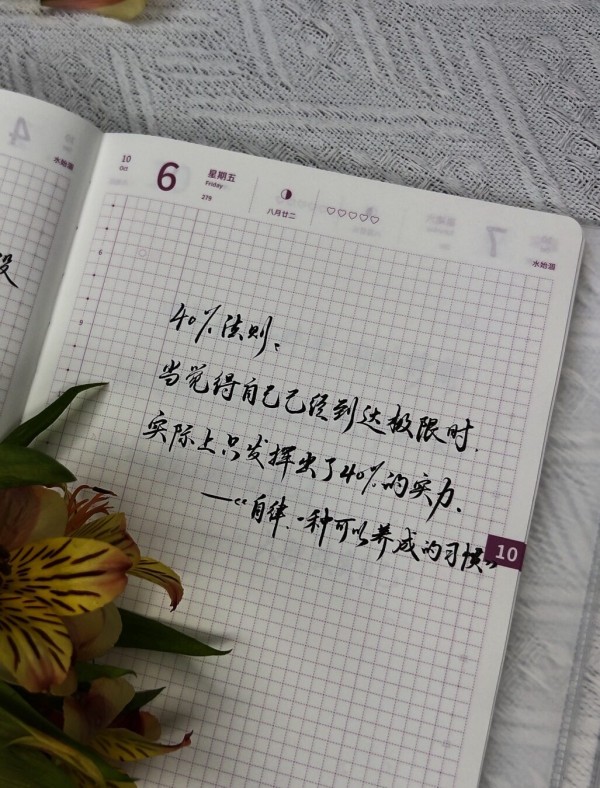 10
Oct
6
星期五
Friday
279
八月廿二
水始涸
6
9
40%法则、
当觉得自己已经到达极限时.
实际上只发挥出了40%的实力.
—“自律、一种可以养成的习惯”
10
4
水始涸
7
没